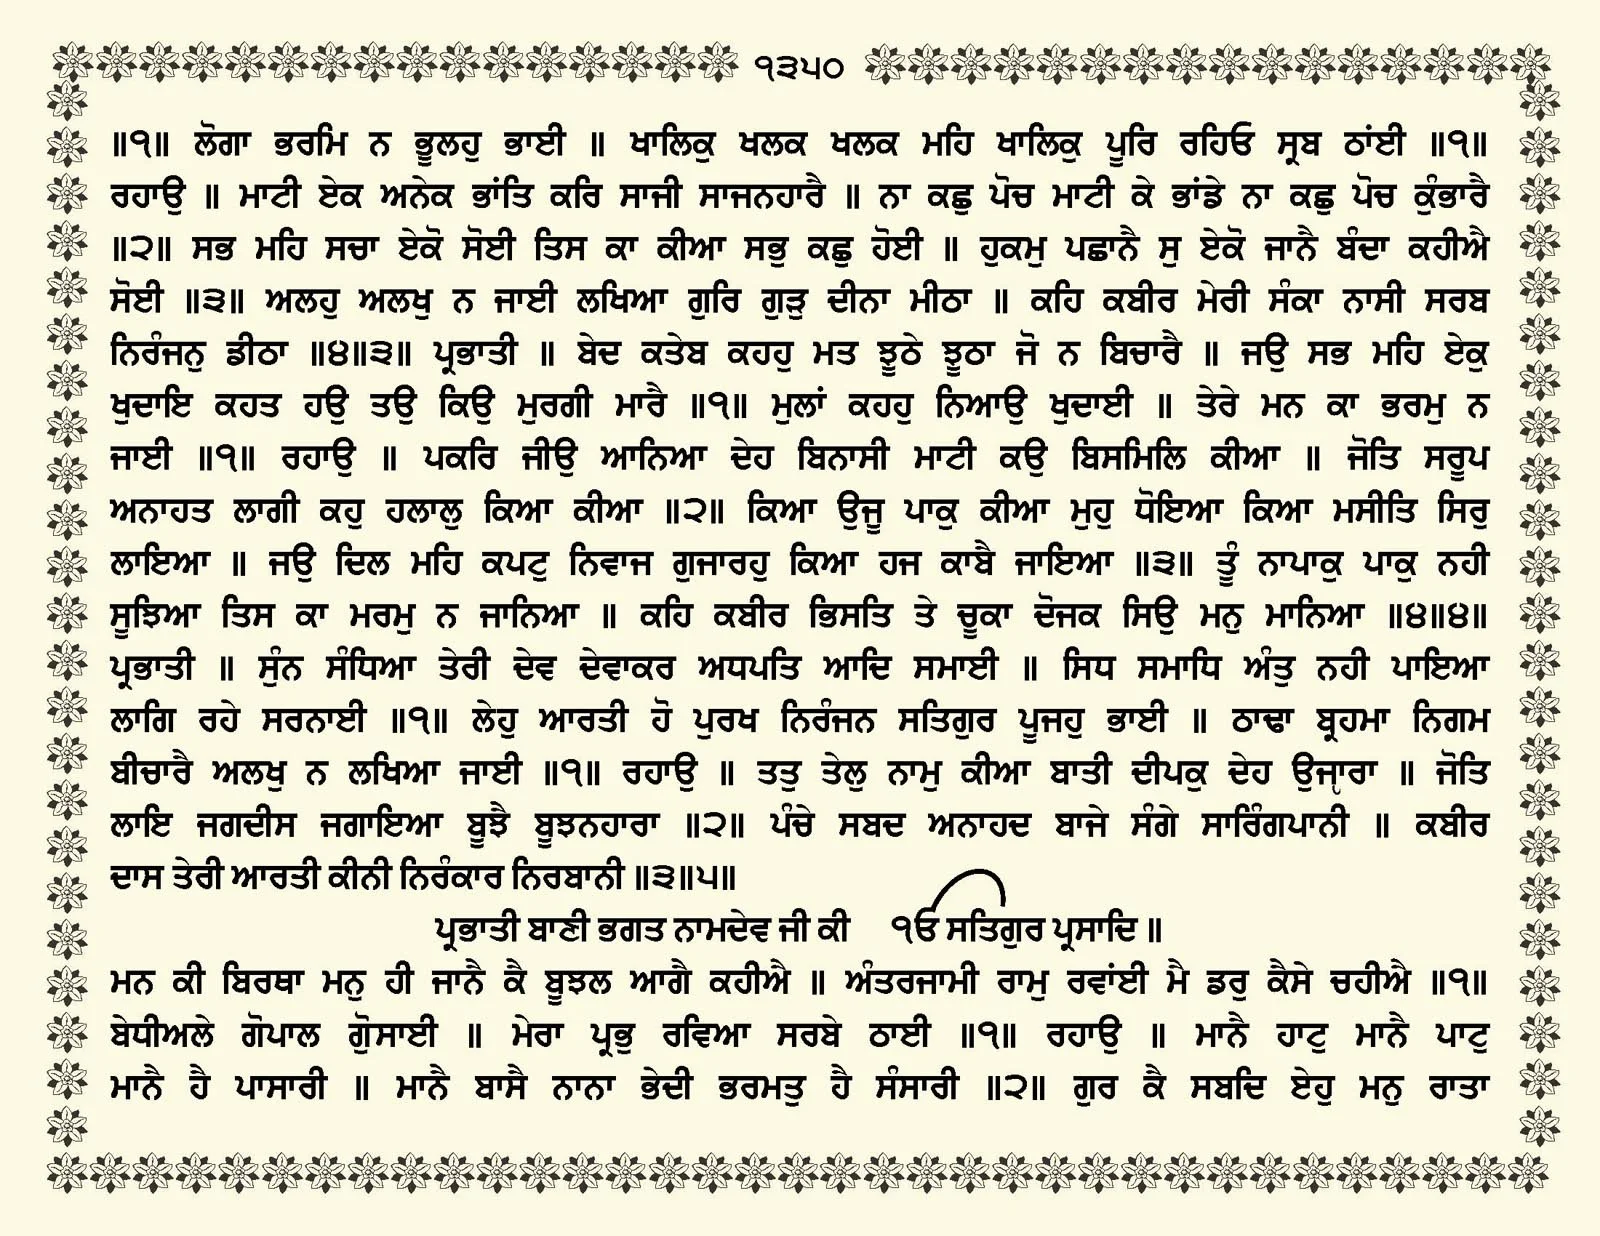 ੧੩੫੦
॥੧॥ ਲੋਗਾ ਭਰਮਿ ਨ ਭੂਲਹੁ ਭਾਈ ॥ ਖਾਲਿਕੁ ਖਲਕ ਖਲਕ ਮਹਿ ਖਾਲਿਕੁ ਪੂਰਿ ਰਹਿਓ ਸ੍ਰਬ ਠਾਂਈ ॥੧॥
ਰਹਾਉ ॥ ਮਾਟੀ ਏਕ ਅਨੇਕ ਭਾਂਤਿ ਕਰਿ ਸਾਜੀ ਸਾਜਨਹਾਰੈ ॥ ਨਾ ਕਛੁ ਪੋਚ ਮਾਟੀ ਕੇ ਭਾਂਡੇ ਨਾ ਕਛੁ ਪੋਚ ਕੁੰਭਾਰੈ
॥੨॥ ਸਭ ਮਹਿ ਸਚਾ ਏਕੋ ਸੋਈ ਤਿਸ ਕਾ ਕੀਆ ਸਭੁ ਕਛੁ ਹੋਈ ॥ ਹੁਕਮੁ ਪਛਾਨੈ ਸੁ ਏਕੋ ਜਾਨੈ ਬੰਦਾ ਕਹੀਐ
ਸੋਈ ॥੩॥ ਅਲਹੁ ਅਲਖੁ ਨ ਜਾਈ ਲਖਿਆ ਗੁਰਿ ਗੁੜੁ ਦੀਨਾ ਮੀਠਾ ॥ ਕਹਿ ਕਬੀਰ ਮੇਰੀ ਸੰਕਾ ਨਾਸੀ ਸਰਬ
ਨਿਰੰਜਨੁ ਡੀਠਾ ॥੪॥੩॥ ਪ੍ਰਭਾਤੀ ॥ ਬੇਦ ਕਤੇਬ ਕਹਹੁ ਮਤ ਝੂਠੇ ਝੂਠਾ ਜੋ ਨ ਬਿਚਾਰੈ ॥ ਜਉ ਸਭ ਮਹਿ ਏਕੁ
ਖੁਦਾਇ ਕਹਤ ਹਉ ਤਉ ਕਿਉ ਮੁਰਗੀ ਮਾਰੈ ॥੧॥ ਮੁਲਾਂ ਕਹਹੁ ਨਿਆਉ ਖੁਦਾਈ ॥ ਤੇਰੇ ਮਨ ਕਾ ਭਰਮੁ ਨ
ਜਾਈ ॥੧॥ ਰਹਾਉ ॥ ਪਕਰਿ ਜੀਉ ਆਨਿਆ ਦੇਹ ਬਿਨਾਸੀ ਮਾਟੀ ਕਉ ਬਿਸਮਿਲਿ ਕੀਆ ॥ ਜੋਤਿ ਸਰੂਪ
ਅਨਾਹਤ ਲਾਗੀ ਕਹੁ ਹਲਾਲੁ ਕਿਆ ਕੀਆ ॥੨॥ ਕਿਆ ਉਜੂ ਪਾਕੁ ਕੀਆ ਮੁਹੁ ਧੋਇਆ ਕਿਆ ਮਸੀਤਿ ਸਿਰੁ
ਲਾਇਆ ॥ ਜਉ ਦਿਲ ਮਹਿ ਕਪਟੁ ਨਿਵਾਜ ਗੁਜਾਰਹੁ ਕਿਆ ਹਜ ਕਾਬੈ ਜਾਇਆ ॥੩॥ ਤੂੰ ਨਾਪਾਕੁ ਪਾਕੁ ਨਹੀ
ਸੂਝਿਆ ਤਿਸ ਕਾ ਮਰਮੁ ਨ ਜਾਨਿਆ ॥ ਕਹਿ ਕਬੀਰ ਭਿਸਤਿ ਤੇ ਚੂਕਾ ਦੋਜਕ ਸਿਉ ਮਨੁ ਮਾਨਿਆ ॥੪॥੪॥
ਪ੍ਰਭਾਤੀ ॥ ਸੁੰਨ ਸੰਧਿਆ ਤੇਰੀ ਦੇਵ ਦੇਵਾਕਰ ਅਧਪਤਿ ਆਦਿ ਸਮਾਈ ॥ ਸਿਧ ਸਮਾਧਿ ਅੰਤੁ ਨਹੀ ਪਾਇਆ
ਲਾਗਿ ਰਹੇ ਸਰਨਾਈ ॥੧॥ ਲੇਹੁ ਆਰਤੀ ਹੋ ਪੁਰਖ ਨਿਰੰਜਨ ਸਤਿਗੁਰ ਪੂਜਹੁ ਭਾਈ ॥ ਠਾਢਾ ਬ੍ਰਹਮਾ ਨਿਗਮ
ਬੀਚਾਰੈ ਅਲਖੁ ਨ ਲਖਿਆ ਜਾਈ ॥੧॥ ਰਹਾਉ ॥ ਤਤੁ ਤੇਲੁ ਨਾਮੁ ਕੀਆ ਬਾਤੀ ਦੀਪਕੁ ਦੇਹ ਉਜ੍ਯਾਰਾ ॥ ਜੋਤਿ
ਲਾਇ ਜਗਦੀਸ ਜਗਾਇਆ ਬੂਝੈ ਬੂਝਨਹਾਰਾ ॥੨॥ ਪੰਚੇ ਸਬਦ ਅਨਾਹਦ ਬਾਜੇ ਸੰਗੇ ਸਾਰਿੰਗਪਾਨੀ ॥ ਕਬੀਰ
ਦਾਸ ਤੇਰੀ ਆਰਤੀ ਕੀਨੀ ਨਿਰੰਕਾਰ ਨਿਰਬਾਨੀ ॥੩॥੫॥
ਪ੍ਰਭਾਤੀ ਬਾਣੀ ਭਗਤ ਨਾਮਦੇਵ ਜੀ ਕੀ ੴ ਸਤਿਗੁਰ ਪ੍ਰਸਾਦਿ ॥
ਮਨ ਕੀ ਬਿਰਥਾ ਮਨੁ ਹੀ ਜਾਨੈ ਕੈ ਬੂਝਲ ਆਗੈ ਕਹੀਐ ॥ ਅੰਤਰਜਾਮੀ ਰਾਮੁ ਰਵਾਂਈ ਮੈ ਡਰੁ ਕੈਸੇ ਚਹੀਐ ॥੧॥
ਬੇਧੀਅਲੇ ਗੋਪਾਲ ਗੋੁਸਾਈ ॥ ਮੇਰਾ ਪ੍ਰਭੁ ਰਵਿਆ ਸਰਬੇ ਠਾਈ ॥੧॥ ਰਹਾਉ ॥ ਮਾਨੈ ਹਾਟੁ ਮਾਨੈ ਪਾਟੁ
ਮਾਨੈ ਹੈ ਪਾਸਾਰੀ ॥ ਮਾਨੈ ਬਾਸੈ ਨਾਨਾ ਭੇਦੀ ਭਰਮਤੁ ਹੈ ਸੰਸਾਰੀ ॥੨॥ ਗੁਰ ਕੈ ਸਬਦਿ ਏਹੁ ਮਨੁ ਰਾਤਾ